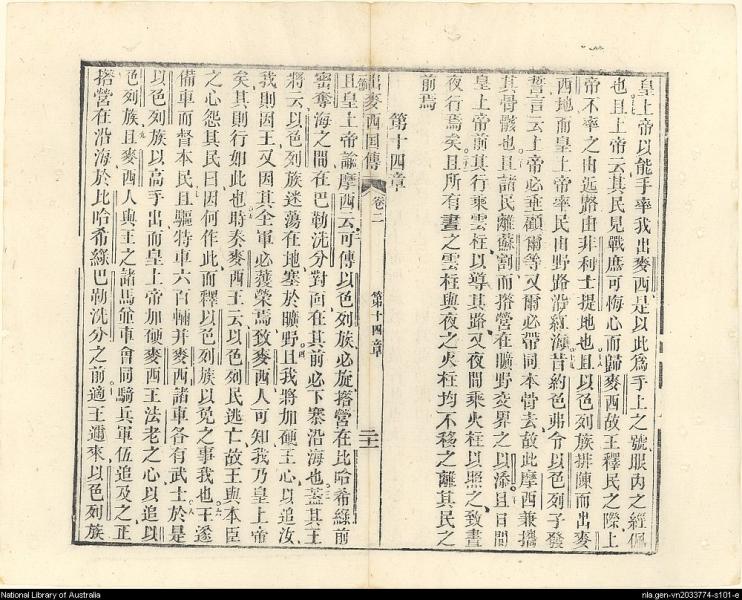 皇上帝以能手率我出麥西是以此爲手上之號服內之經佩
也且上帝云其民見戰庶可悔心而歸麥西故王釋民之際上
帝不率之由近路由非利士提地也且以色列族排陳而出麥
西地而皇上帝率民由野路沿紅海昔約色弗令以色列子發
誓言云上帝必垂顧爾等又爾必帶同本骨去故此摩西兼攜
其骨骸也且諸民離蘇割而搭營在曠野交界之以添且日間
皇上帝前其行乘雲柱以導其路又夜間乘火柱以照之致晝
夜行焉矣且所有晝之雲柱與夜之火柱均不移之離其民之
前焉
第十四章
出麥西国傳
卷二
第十四章
二十
且皇上帝諭摩西云可傳以色列族必旋搭營在比哈希綠前
密奪海之間在巴勒洗分對向在其前必下寨沿海也蓋其王
將云以色列族迷蕩在地塞於曠野且我將加硬王心以追汝
我則因王又因其全軍必獲榮焉致麥西人可知我乃皇上帝
矣其則行如此也時奏麥西王云以色列民逃亡故王與本臣
之心怨其民曰因何作此而釋以色列族以免之事我也王遂
備車而督本民且驅特車六百輛并麥西諸車各有武士於是
以色列族以高手出而皇上帝加硬麥西王法老之心以追以
色列族且麥西人與王之諸馬並車會同騎兵軍伍追及之正
搭營在沿海於比哈希綠巴勒洗分之前適王邇來以色列族
National Library of Australia
nla.gen-vn2033774-s101-e